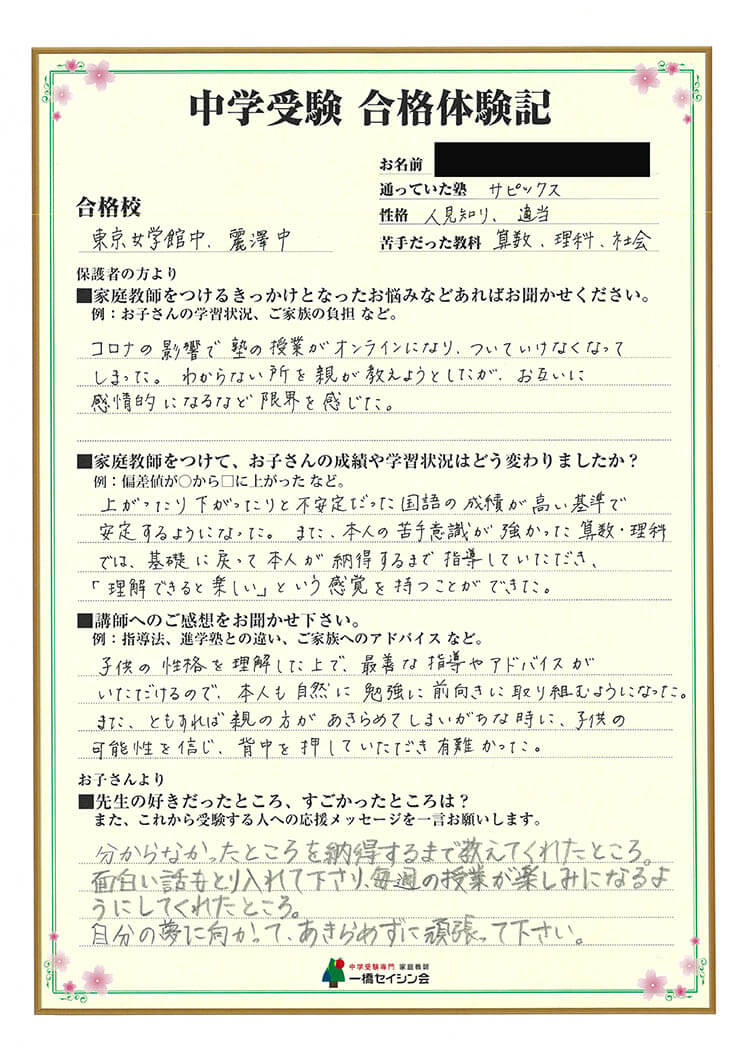 中学受験 合格体験記
お名前
通っていた塾 サピックス
合格校
性格 人見知り、適当
東京女学館中、麗澤中
苦手だった教科 算数、理科、社会
保護者の方より
■家庭教師をつけるきっかけとなったお悩みなどあればお聞かせください。
例：お子さんの学習状況、ご家族の負担 など。
コロナの影響で塾の授業がオンラインになり、ついていけなくなって
しまった。わからない所を親が教えようとしたが、お互いに
感情的になるなど限界を感じた。
■家庭教師をつけて、お子さんの成績や学習状況はどう変わりましたか？
例：偏差値が○から□に上がった など。
上がったり下がったりと不安定だった国語の成績が高い基準で
安定するようになった。また、本人の苦手意識が強かった算数・理科
では、基礎に戻って本人が納得するまで指導していただき、
「理解できると楽しい」という感覚を持つことができた。
■講師へのご感想をお聞かせ下さい。
例：指導法、進学塾との違い、ご家族へのアドバイス など。
子供の性格を理解した上で、最善な指導やアドバイスが
いただけるので、本人も自然に勉強に前向きに取り組むようになった。
また、ともすれば親の方があきらめてしまいがちな時に、子供の
可能性を信じ、背中を押していただき有難かった。
お子さんより
■先生の好きだったところ、すごかったところは？
また、これから受験する人への応援メッセージを一言お願いします。
分からなかったところを納得するまで教えてくれたところ。
面白い話もとり入れて下さり、毎週の授業が楽しみになるよ
うにしてくれたところ。
自分の夢に向かって、あきらめずに頑張って下さい。
中学受験専門 家庭教師
一橋セイシン会